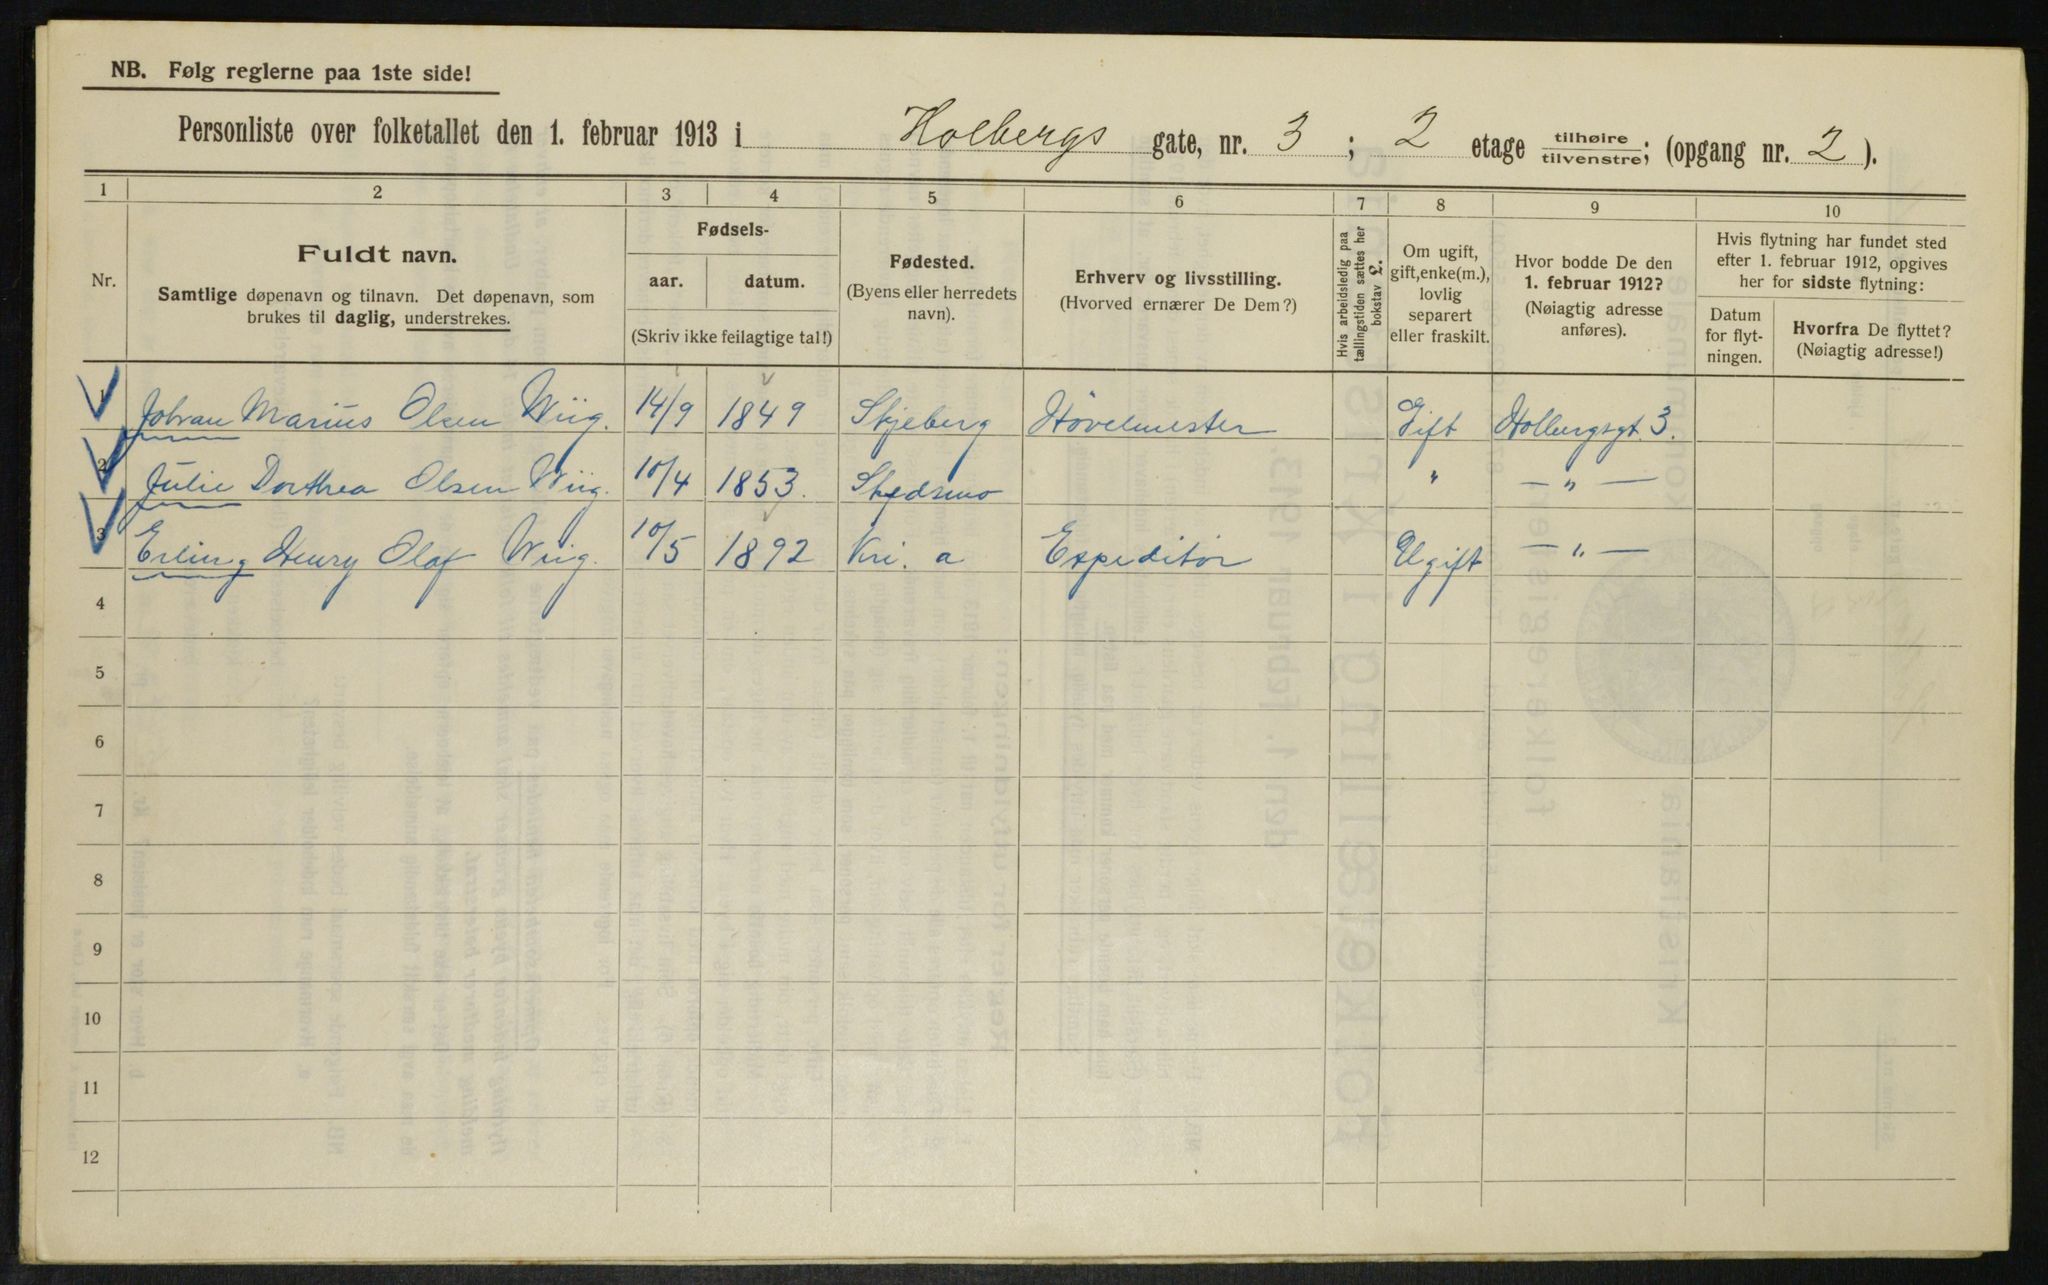 NB. Følg reglerne paa 1ste side!
Personliste over folketallet den 1. februar 1913 i Holbergs gate, nr. 3 ; 2 etage tilhøire tilvenstre; (opgang nr. 2 ).
1 2 3 4 5 6 7 8 9 10
Nr.
Fuldt navn.
Samtlige døpenavn og tilnavn. Det døpenavn, som
brukes til daglig, understrekes.
Fødsels-
aar. datum.
(Skriv ikke feilagtige tal!)
Fødested.
(Byens eller herredets
navn).
Erhverv og livsstilling.
(Hvorved ernærer De Dem?)
Hvis arbeidsledig paa
tællingstiden sættes her
bokstav L.
Om ugift,
gift, enke(m.),
lovlig
separert
eller fraskilt.
Hvor bodde De den
1. februar 1912?
(Nøiagtig adresse
anføres).
Hvis flytning har fundet sted
efter 1. februar 1912, opgives
her for sidste flytning:
Datum
for flyt-
ningen.
Hvorfra De flyttet?
(Nøiagtig adresse!)
1 Johran Marius Olsen Wiig. 14/9 1849 Skjeberg Hövelmester Gift Holbergsgt. 3.
2 Julie Dorthea Olsen Wiig. 10/4 1853. Skedsmo " — " —
3 Erling Henry Olaf Wiig. 10/5 1892 Kri. a Expeditör Ugift — " —
4
5
6
7
8
9
10
11
12